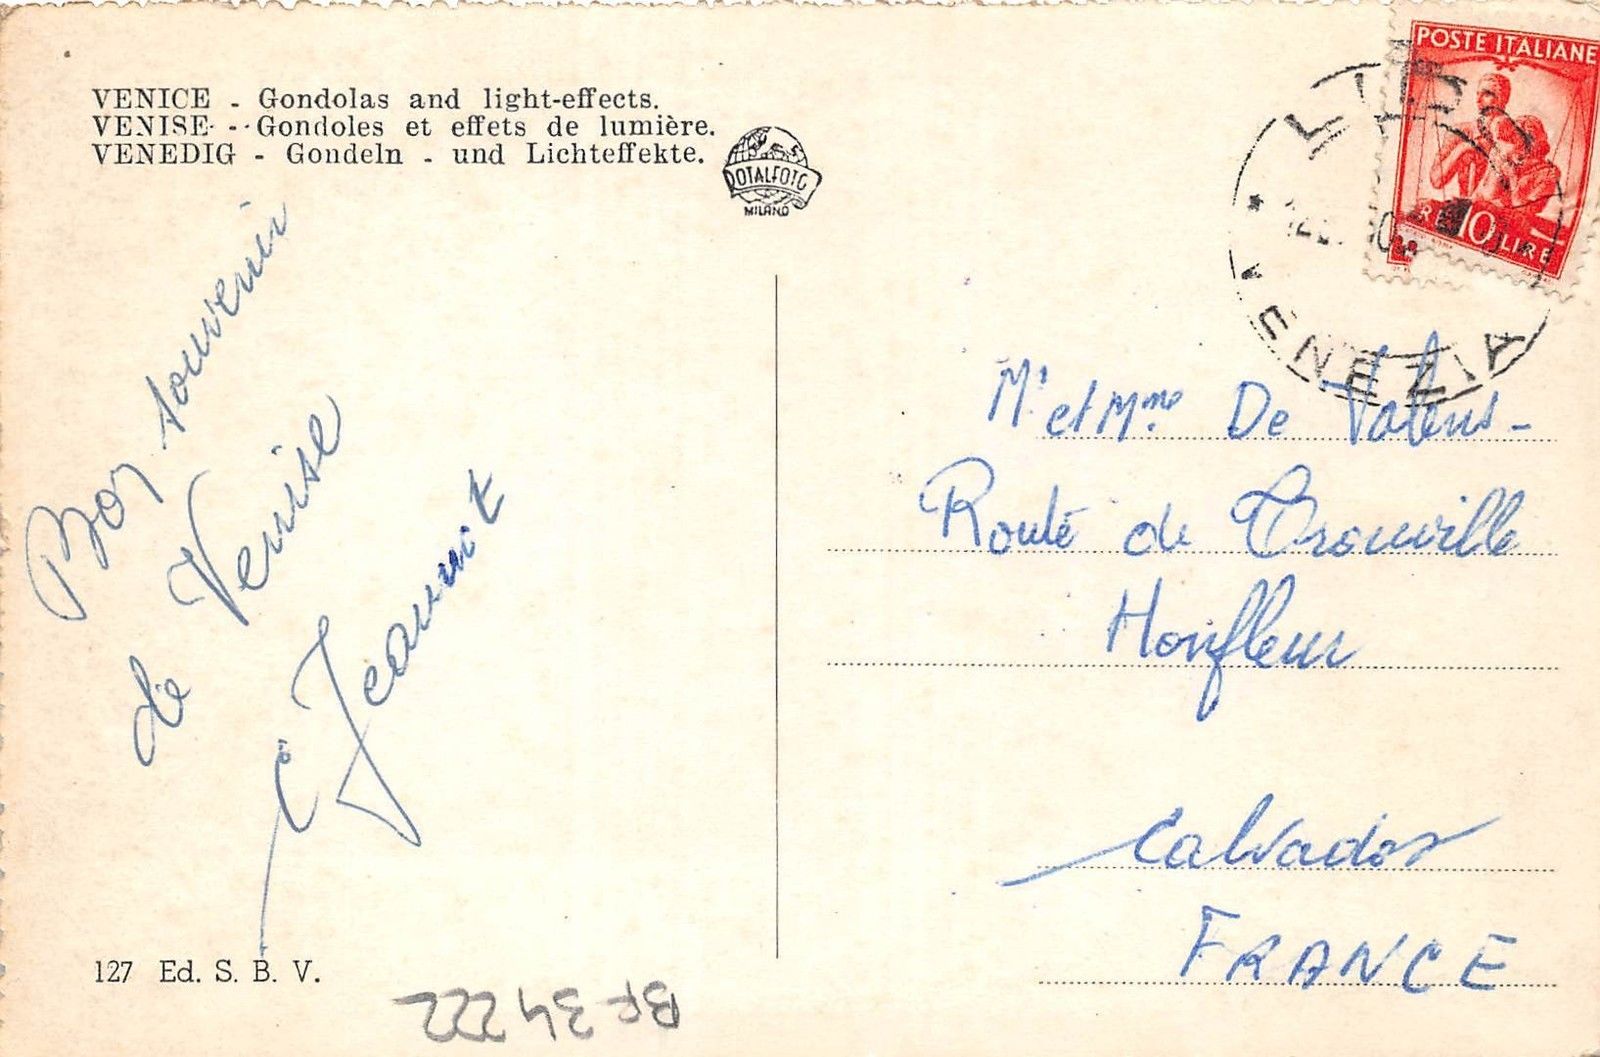 VENICE - Gondolas and light-effects.
VENISE - Gondoles et effets de lumière.
VENEDIG - Gondeln - und Lichteffekte.
ROTALFOTO
MILANO
POSTE ITALIANE
10 LIRE
LIDO
VENEZIA
Bon souvenir
de Venise
Jeannot
Mr et Mme De
Route de Trouville
Honfleur
Calvados
FRANCE
127 Ed. S. B. V.
BF 34222